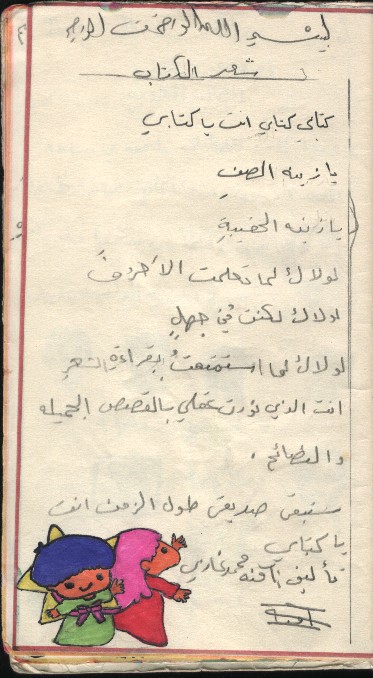 بسم الله الرحمن الرحيم
شعر الكتاب
كتابي كتابي انت يا كتابي
يا زينه الصف
يا زينه الحقيبة
لولاك لما تعلمت الاحرف
لولاك لكنت في جهل
لولاك لما استمتعت بقراءة الشعر
انت الذي نورت عقلي بالقصص الجميله
والنصائح .
ستبقى صديقي طول الزمن انت
يا كتابي
تأليف آمنه محمد غازي
آمنة